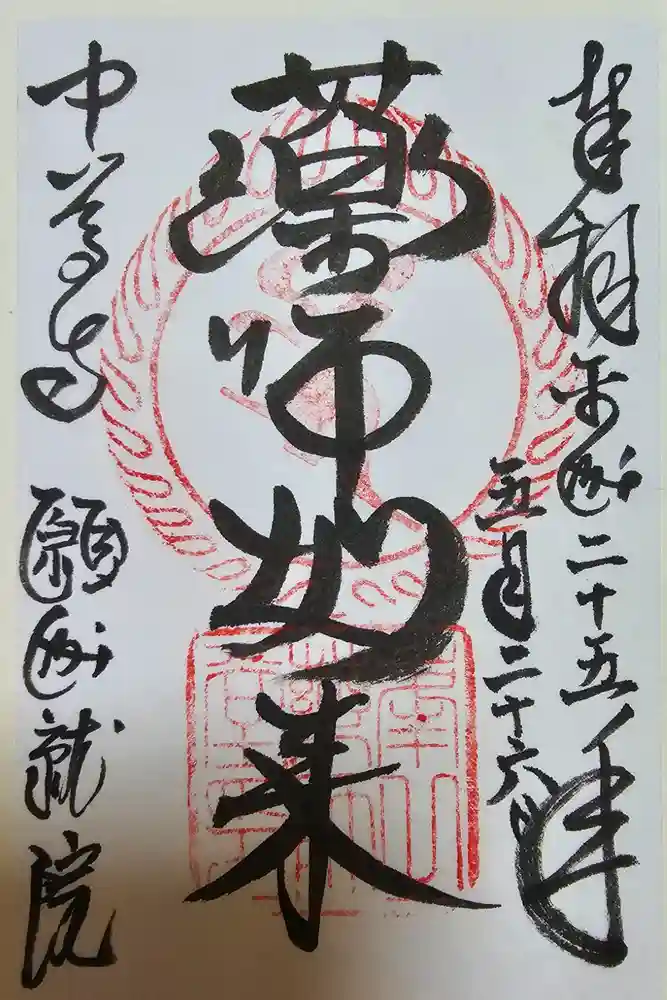 奉拝 平成二十五年
五月二十六日
薬師如来
中尊寺 願成就院